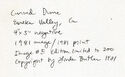 Curved Dune
Eureka Valley, Ca
4"x5" negative
1981 image/1981 print
Image #5 Edition limited to 200
Copyright by Gordon Butler 1981